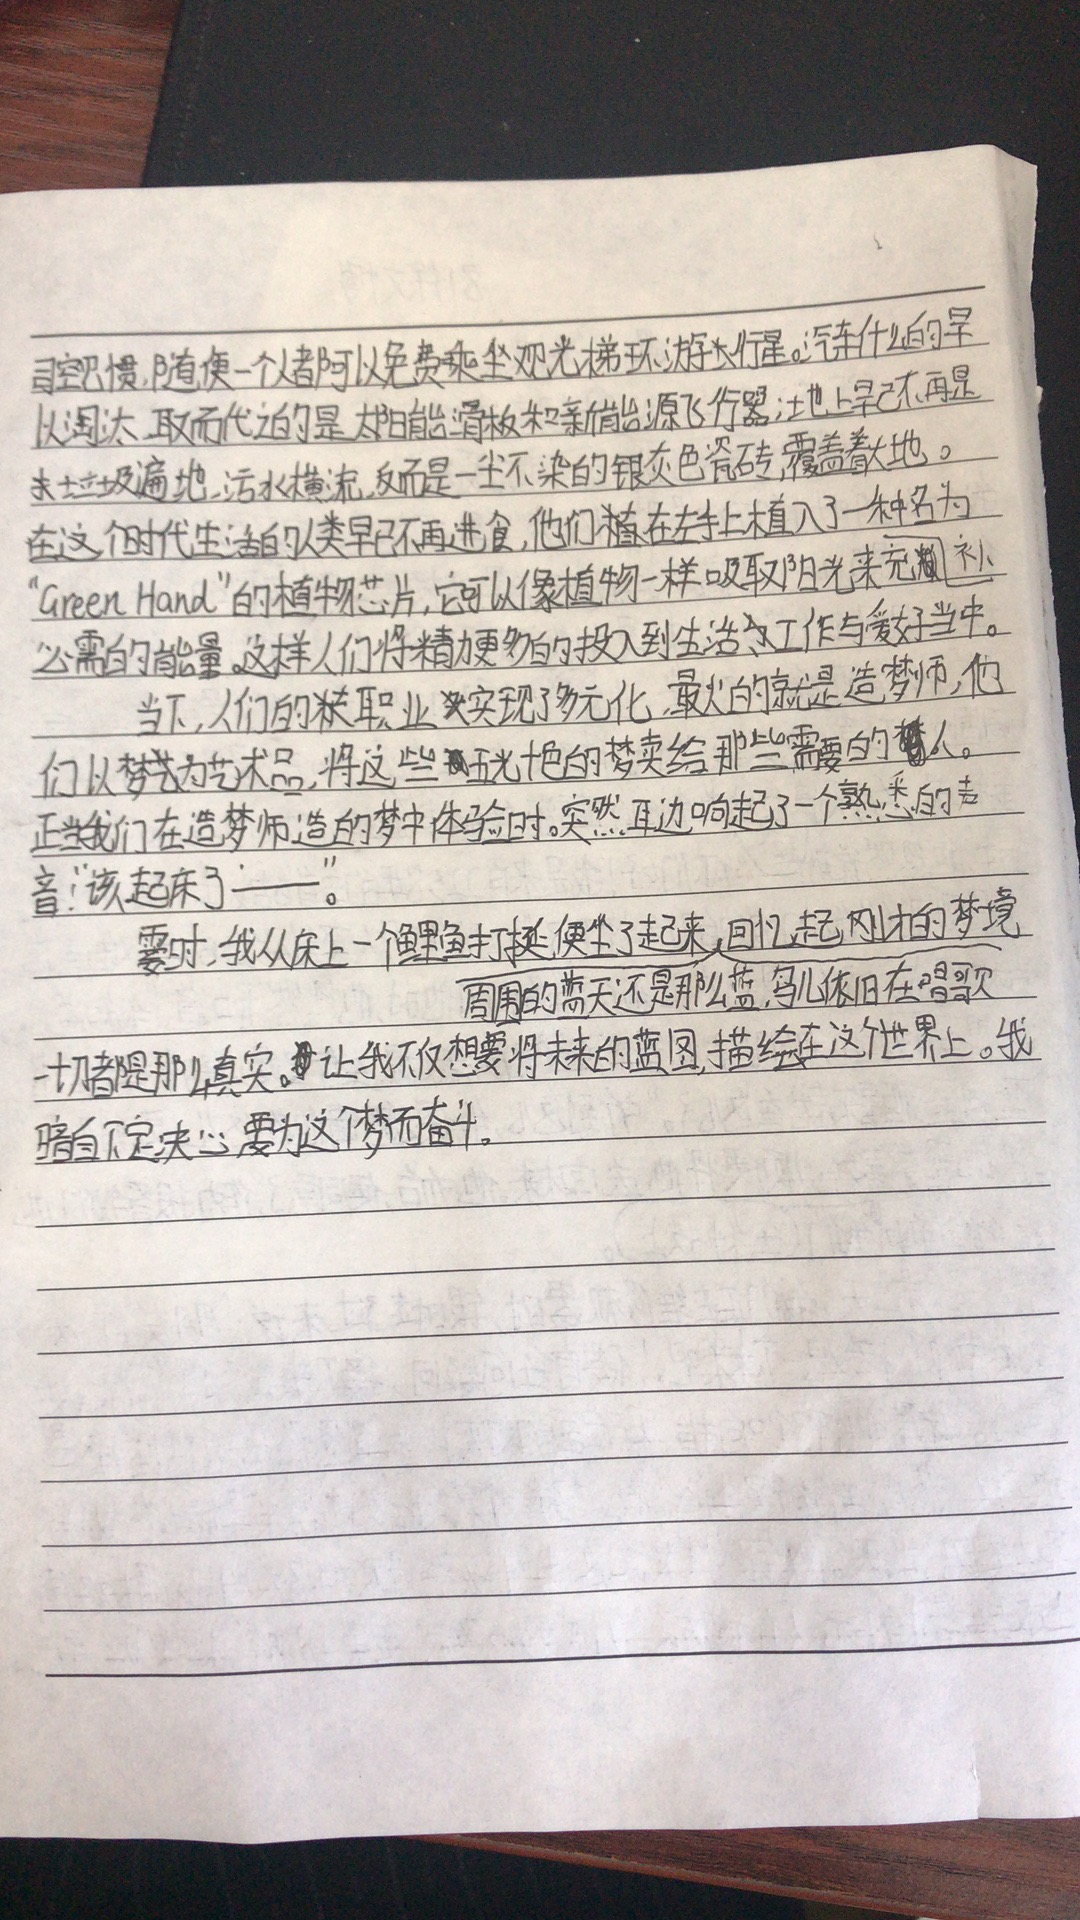 司空见惯，随便一个人都可以免费乘坐观光梯环游行星。汽车什么的早
以淘汰，取而代之的是太阳能滑板和新能源飞行器；土地上早已不再是
垃圾遍地，污水横流，反而是一尘不染的银灰色瓷砖，覆盖着大地。
在这个时代生活的人类早已不再进食，他们在左手上植入了一种名为
“Green Hand”的植物芯片，它可以像植物一样吸取阳光来补充
必需的能量。这样人们将精力更多的投入到生活、工作与爱好当中。
当下，人们的职业实现了多元化，最火的就是造梦师，他
们以梦为艺术品，将这些五光十色的梦卖给那些需要的人。
正当我们在造梦师造的梦中体验时。突然耳边响起了一个熟悉的声
音：“该起床了——”。
霎时，我从床上一个鲤鱼打挺便坐了起来，回忆起刚才的梦境
周围的蓝天还是那么蓝，鸟儿依旧在唱歌
一切都是那么真实。让我不仅想要将未来的蓝图，描绘在这个世界上。我
暗自下定决心，要为这个梦而奋斗。